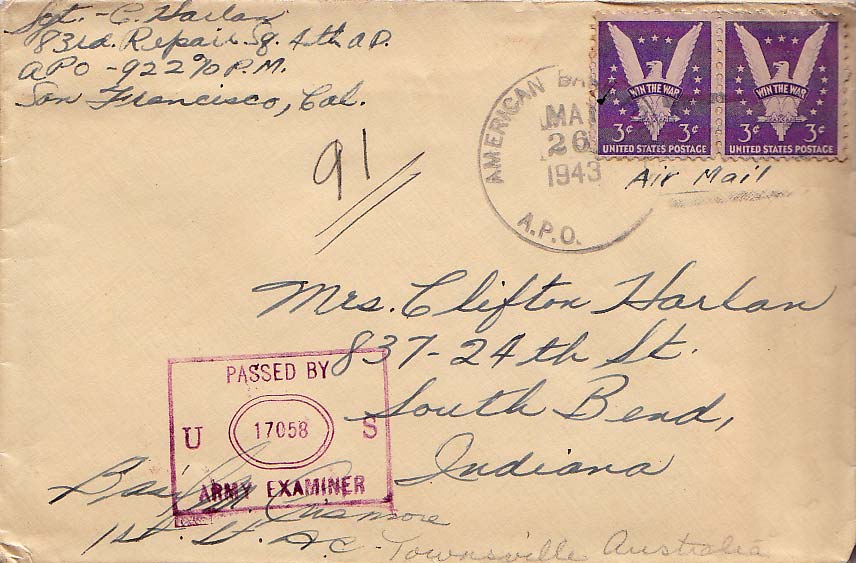 Sgt. - C. Harlan
83rd. Repair Sq. 4th a D.
APO - 922 % P.M.
San Francisco, Cal.
91
AMERICAN
A.P.O.
26
1943
WIN THE WAR
3¢ 3¢
UNITED STATES POSTAGE
WIN THE WAR
3¢ 3¢
UNITED STATES POSTAGE
Air Mail
Mrs. Clifton Harlan
837-24th St.
South Bend,
Indiana
PASSED BY
U 17058 S
ARMY EXAMINER
1st. Lt. A.C. Townsville Australia